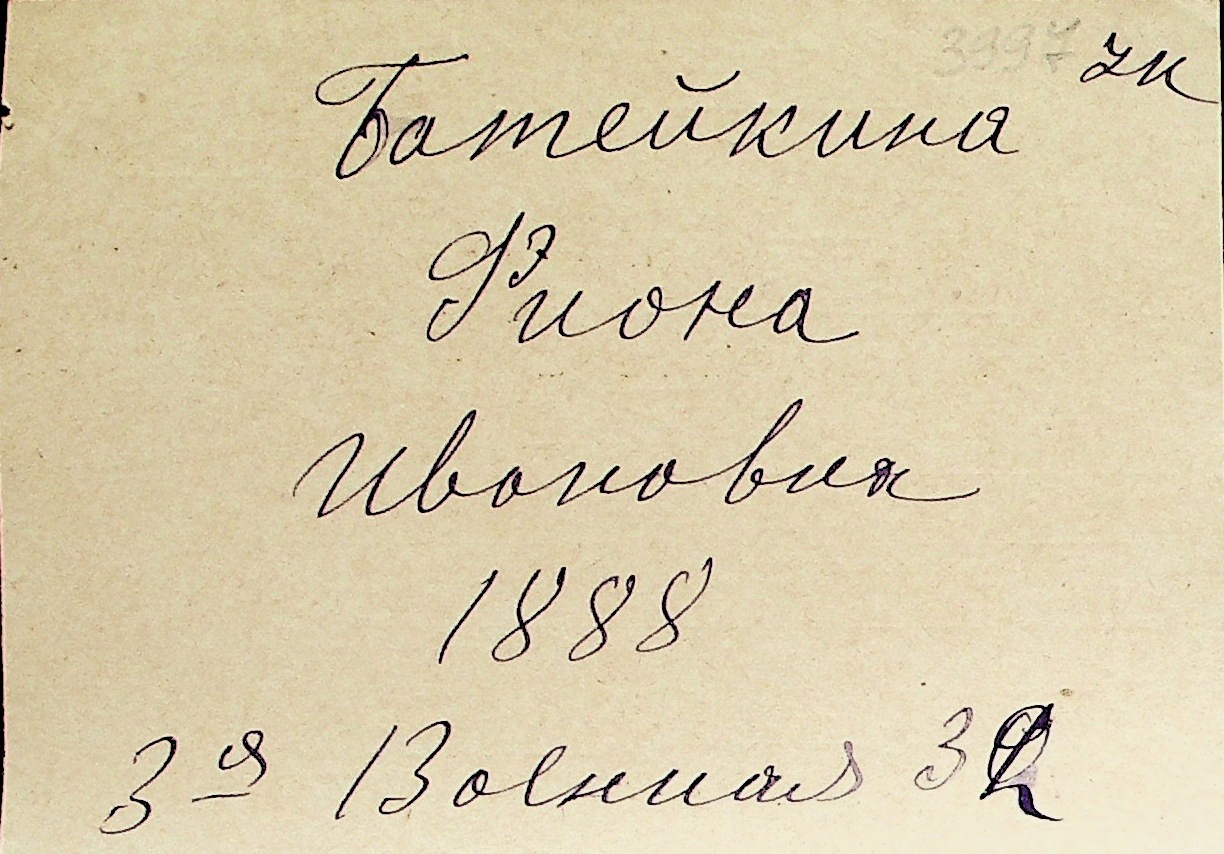 3997 зк
Батейкина
Фиона
Ивановна
1888
3я Военная 32